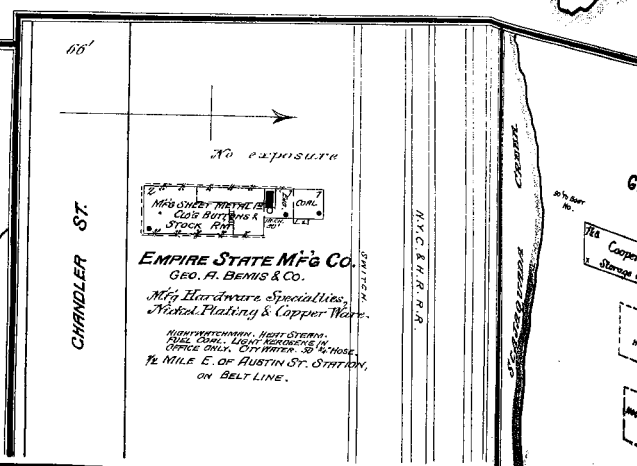 66'
No exposure
2
1
1
M'f'g Sheet Metal 1st
Clo'g Buttons &
Stock Rm.
Eng.
Coal
EMPIRE STATE M'F'G CO.
GEO. A. BEMIS & CO.
M'f'g Hardware Specialties,
Nickel Plating & Copper Ware.
NIGHTWATCHMAN. HEAT STEAM.
FUEL COAL. LIGHT KEROSENE IN
OFFICE ONLY. CITY WATER. 50' ¾" HOSE.
½ MILE E. OF AUSTIN ST. STATION,
ON BELT LINE.
CHANDLER ST.
SWITCH
N.Y.C. & H.R.R.R.
SCAJAQUADA CREEK
G
Cooper
Storage